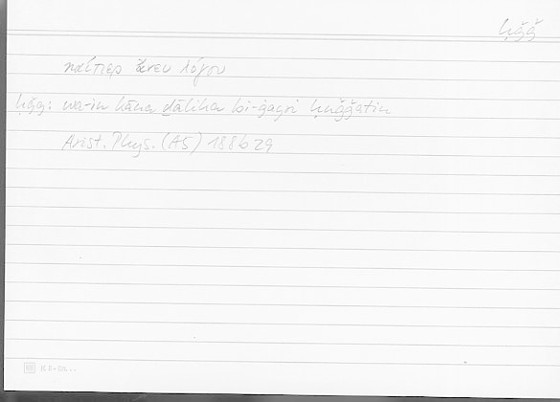 ḥǧǧ
καίπερ ἄνευ λόγου
ḥǧǧ: wa-in kāna ḏālika bi-ġayri ḥuǧǧatin
Arist. Phys. (A5) 188b29